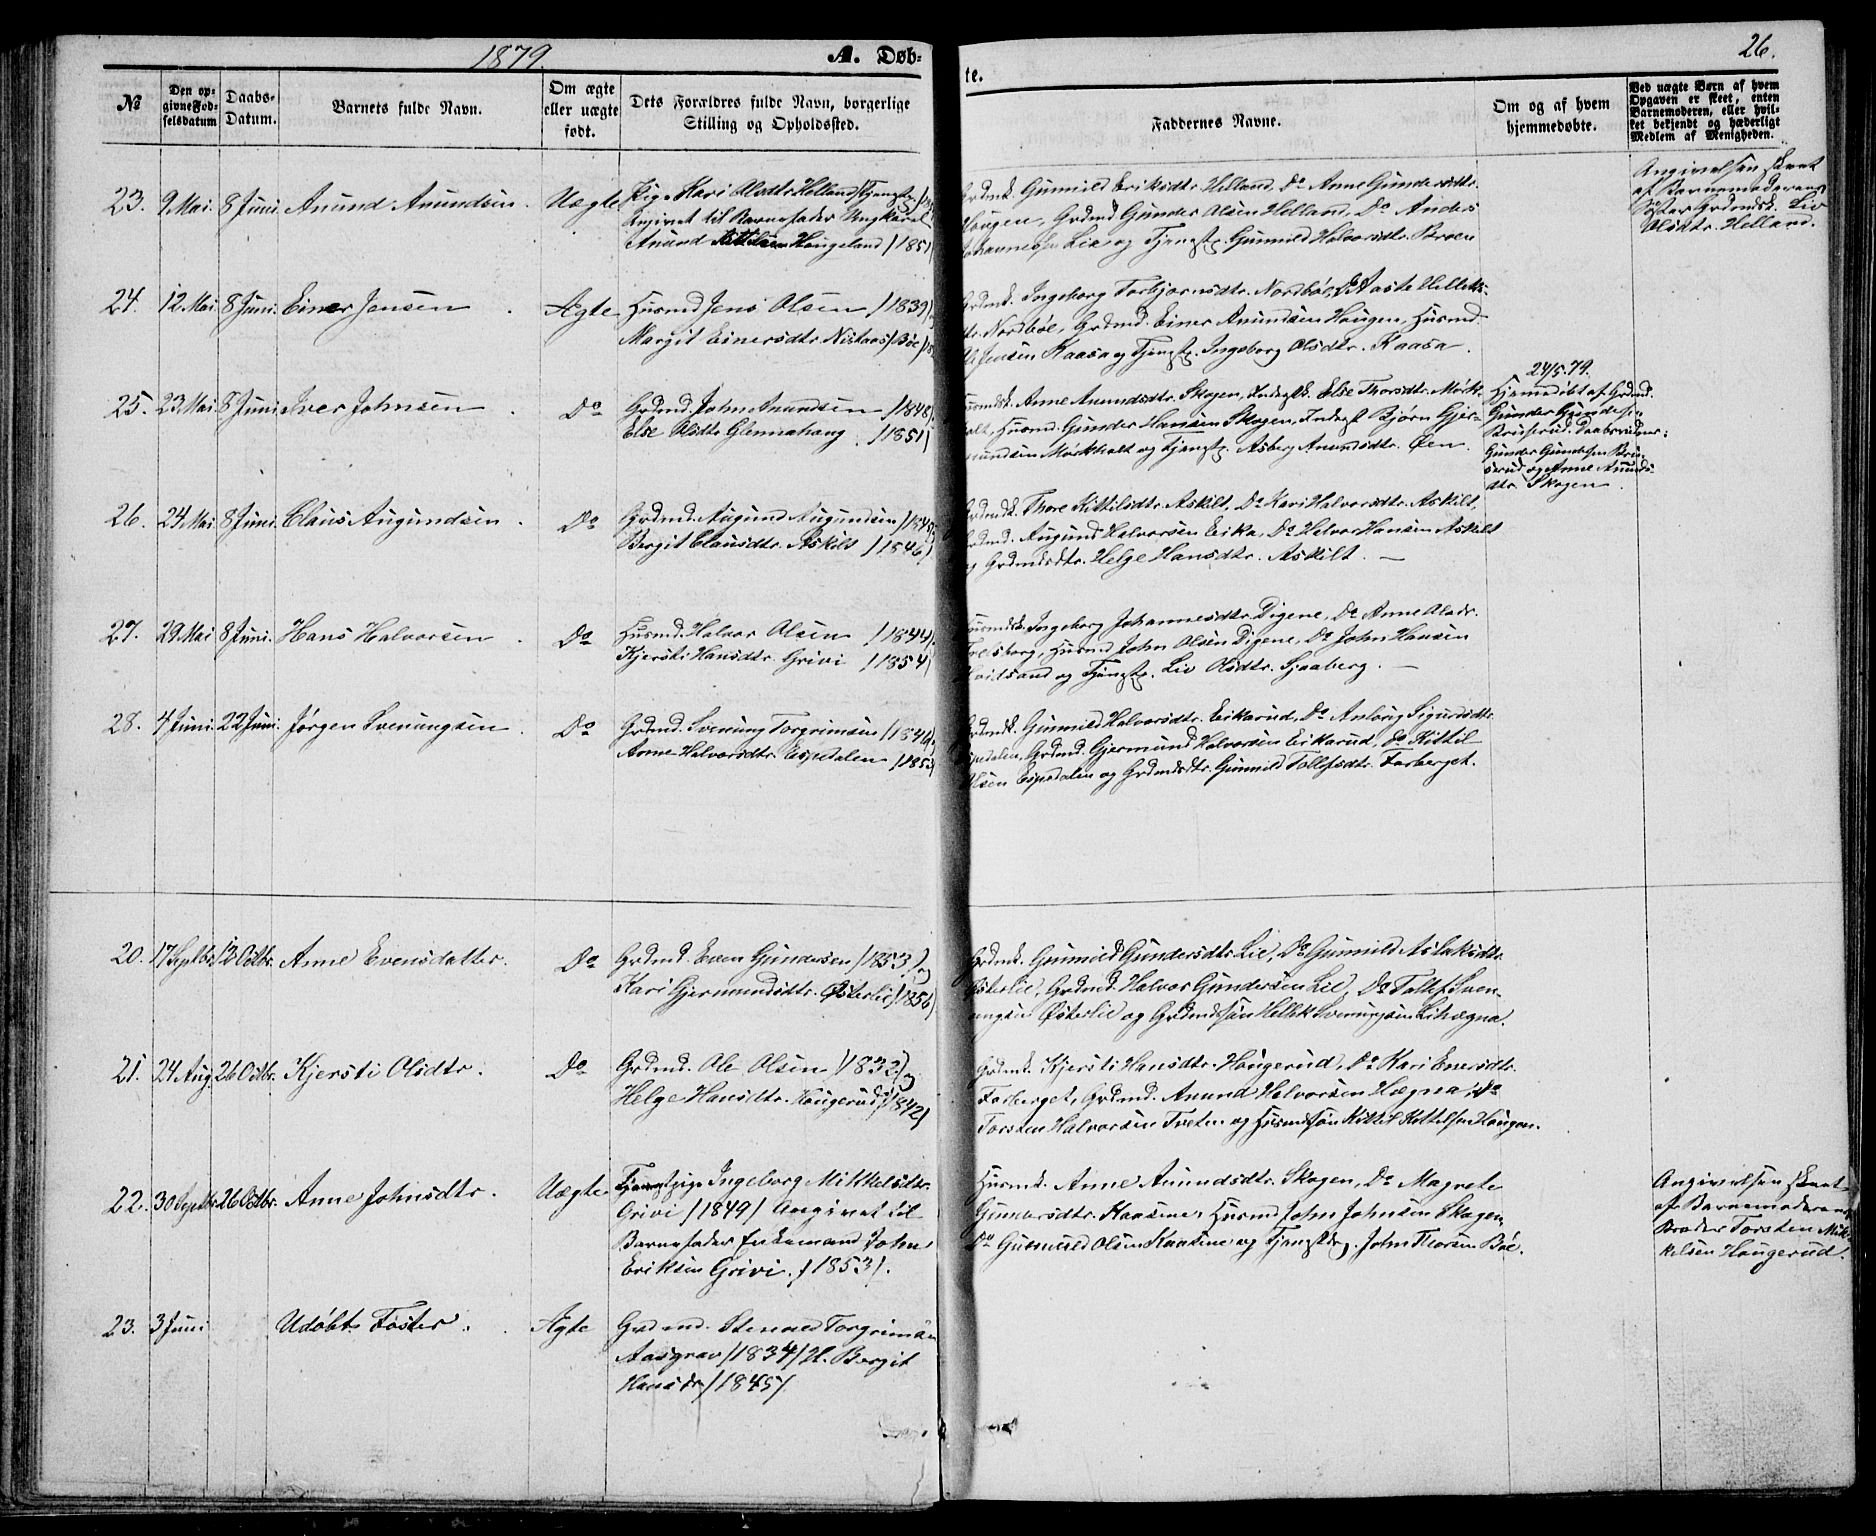 1879.
A. Døb-
te.
26.
№
Den op-
givne Fød-
selsdatum
Daabs-
Datum.
Barnets fulde Navn.
Om ægte
eller uægte
født.
Dets Forældres fulde Navn, borgerlige
Stilling og Opholdssted.
Faddernes Navne.
Om og af hvem
hjemmedøbte.
Ved uægte Børn af hvem
Opgaven er skeet, enten
Barnemoderen, eller hvil-
ket bekjendt og hæderligt
Medlem af Menigheden.
23. 9 Mai 8 Juni. Anund Anundsen. Uægte
Pige Kari Olsdtr. Helland
Angivet til Barnefader Ungkarl
Anund Kittilsen Haugeland /1851
Grdmdsk. Gunnild Eriksdtr. Helland, Do Anne Gundersdtr.
Haugen, Grdmd Gunder Olsen Helland, Do Anders
Johannessen Lia og Tjenestp. Gunnild Halvorsdtr. Broen
Angivelsen skeet
af Barnemoderens
Søster Grdmdsk. Liv
Olsdtr. Helland.
24. 12. Mai 8 Juni. Einer Jensen. Ægte
Husmd Jens Olsen /1839/
Margit Einersdtr. Nistaas/Bøe/
Grdmdsk. Ingeborg Torbjørnsdtr. Nordbøe, Do Aaste Helleks-
dtr. Nordbøe, Grdmd. Einer Anundsen Haugen, Husmd.
Ole Jensen Kaasa og Tjenestp. Ingeborg Olsdtr. Kaasa.
25. 23. Mai 8 Juni. Iver Johnsen. Do
Grdmd. John Anundsen /1848/
Else Olsdtr. Glennahaug. /1851/
Husmdsk. Anne Anundsdtr. Skogen, Indestsk. Else Thorsdtr. Mørk-
holt, Husmd. Gunder Hansen Skogen, Indest Bjørn Gjer-
mundsen Mørkholt og Tjenestp. Asberg Anundsdtr. Øen.
24/5.79.
Hjemmedøbt af Grdmd.
Gunder Gundersen
Bruserud. Daabsvidner:
Gunder Gundersen Bru-
serud og Anne Anunds-
dtr. Skogen.
26. 24. Mai 8 Juni. Claus Augundsen. Do
Grdmd. Augund Augundsen /1848/
Bergit Clausdtr. Askilt /1846/
Grdmdsk. Thore Kittilsdtr. Askilt, Do Kari Halvorsdtr. Askilt,
Grdmd. Augund Halvorsen Eika, Do Halvor Hansen Askilt
og Grdmdsdtr. Helge Hansdtr. Askilt.
27. 29. Mai 8 Juni. Hans Halvorsen. Do
Husmd. Halvor Olsen /1844/
Kjersti Hansdtr. Grivi /1854/
Husmdsk. Ingeborg Johannesdtr. Digene, Do Anne Olsdtr.
Husmd John Olsen Digene, Do John Hansen
og Tjenestp. Liv Olsdtr. Sjaaberg.
28. 4 Juni. 22 Juni. Jørgen Svenungsen. Do
Grdmd. Svenung Torgrimsen /1844/
Anne Halvorsdtr. Espedalen /1853/
Grdmdsk. Gunnild Halvorsdtr. Eikarud, Do Anlaug Sigurdsdtr.
Espedalen, Grdmd. Gjermund Halvorsen Eikarud, Do Kittil
Olsen Espedalen og Grdmdsdtr. Gunnild Tollefsdtr. Farberget.
20. 17 Septbr. 12 Octbr. Anne Evensdatter. Do
Grdmd. Even Gundersen /1853/ og
Kari Gjermundsdtr. Østerlie /1856/
Grdmdsk. Gunnild Gundersdtr. Lie, Do Gunnild Aslaksdtr.
Østerlie, Grdmd. Halvor Gundersen Lie, Do Tollef Sven-
ungsen Østerlie og Grdmdssøn Hellek Svenungsen
21. 24 Aug. 26 Octbr. Kjersti Olsdtr. Do
Grdmd. Ole Olsen /1832/ og
Helge Hansdtr. Haugerud /1842/
Grdmdsk. Kjersti Hansdtr. Haugerud, Do Kari Enersdtr.
Farberget, Grdmd. Anund Halvorsen Hægna, Do
Torsten Halvorsen Tveten og Husmdssøn Kittil Kittilsen Haugen.
22. 30 Septbr. 26 Octbr. Anne Johnsdtr. Uægte
Tjenestpige Ingeborg Mikkelsdtr.
Grivi /1849/ Angivet til
Barnefader Enkemand John
Eriksen Grivi. /1853/.
Husmd. Anne Anundsdtr. Skogen, Do Magrete
Gundersdtr. Kaasene, Husmd John Johnsen Skogen,
Do Gunnuld Olsen Kaasene og Tjenestdrg. John Thorsen Bøe.
Angivelsen skeet
af Barnemoderens
Broder Torsten Mik-
kelsen Haugerud.
23. 3 Juni Udøbt Foster. Ægte
Grdmd. Steinar Torgrimsen
Aasgrav /1834/ H. Bergit
Hansdtr /1845/